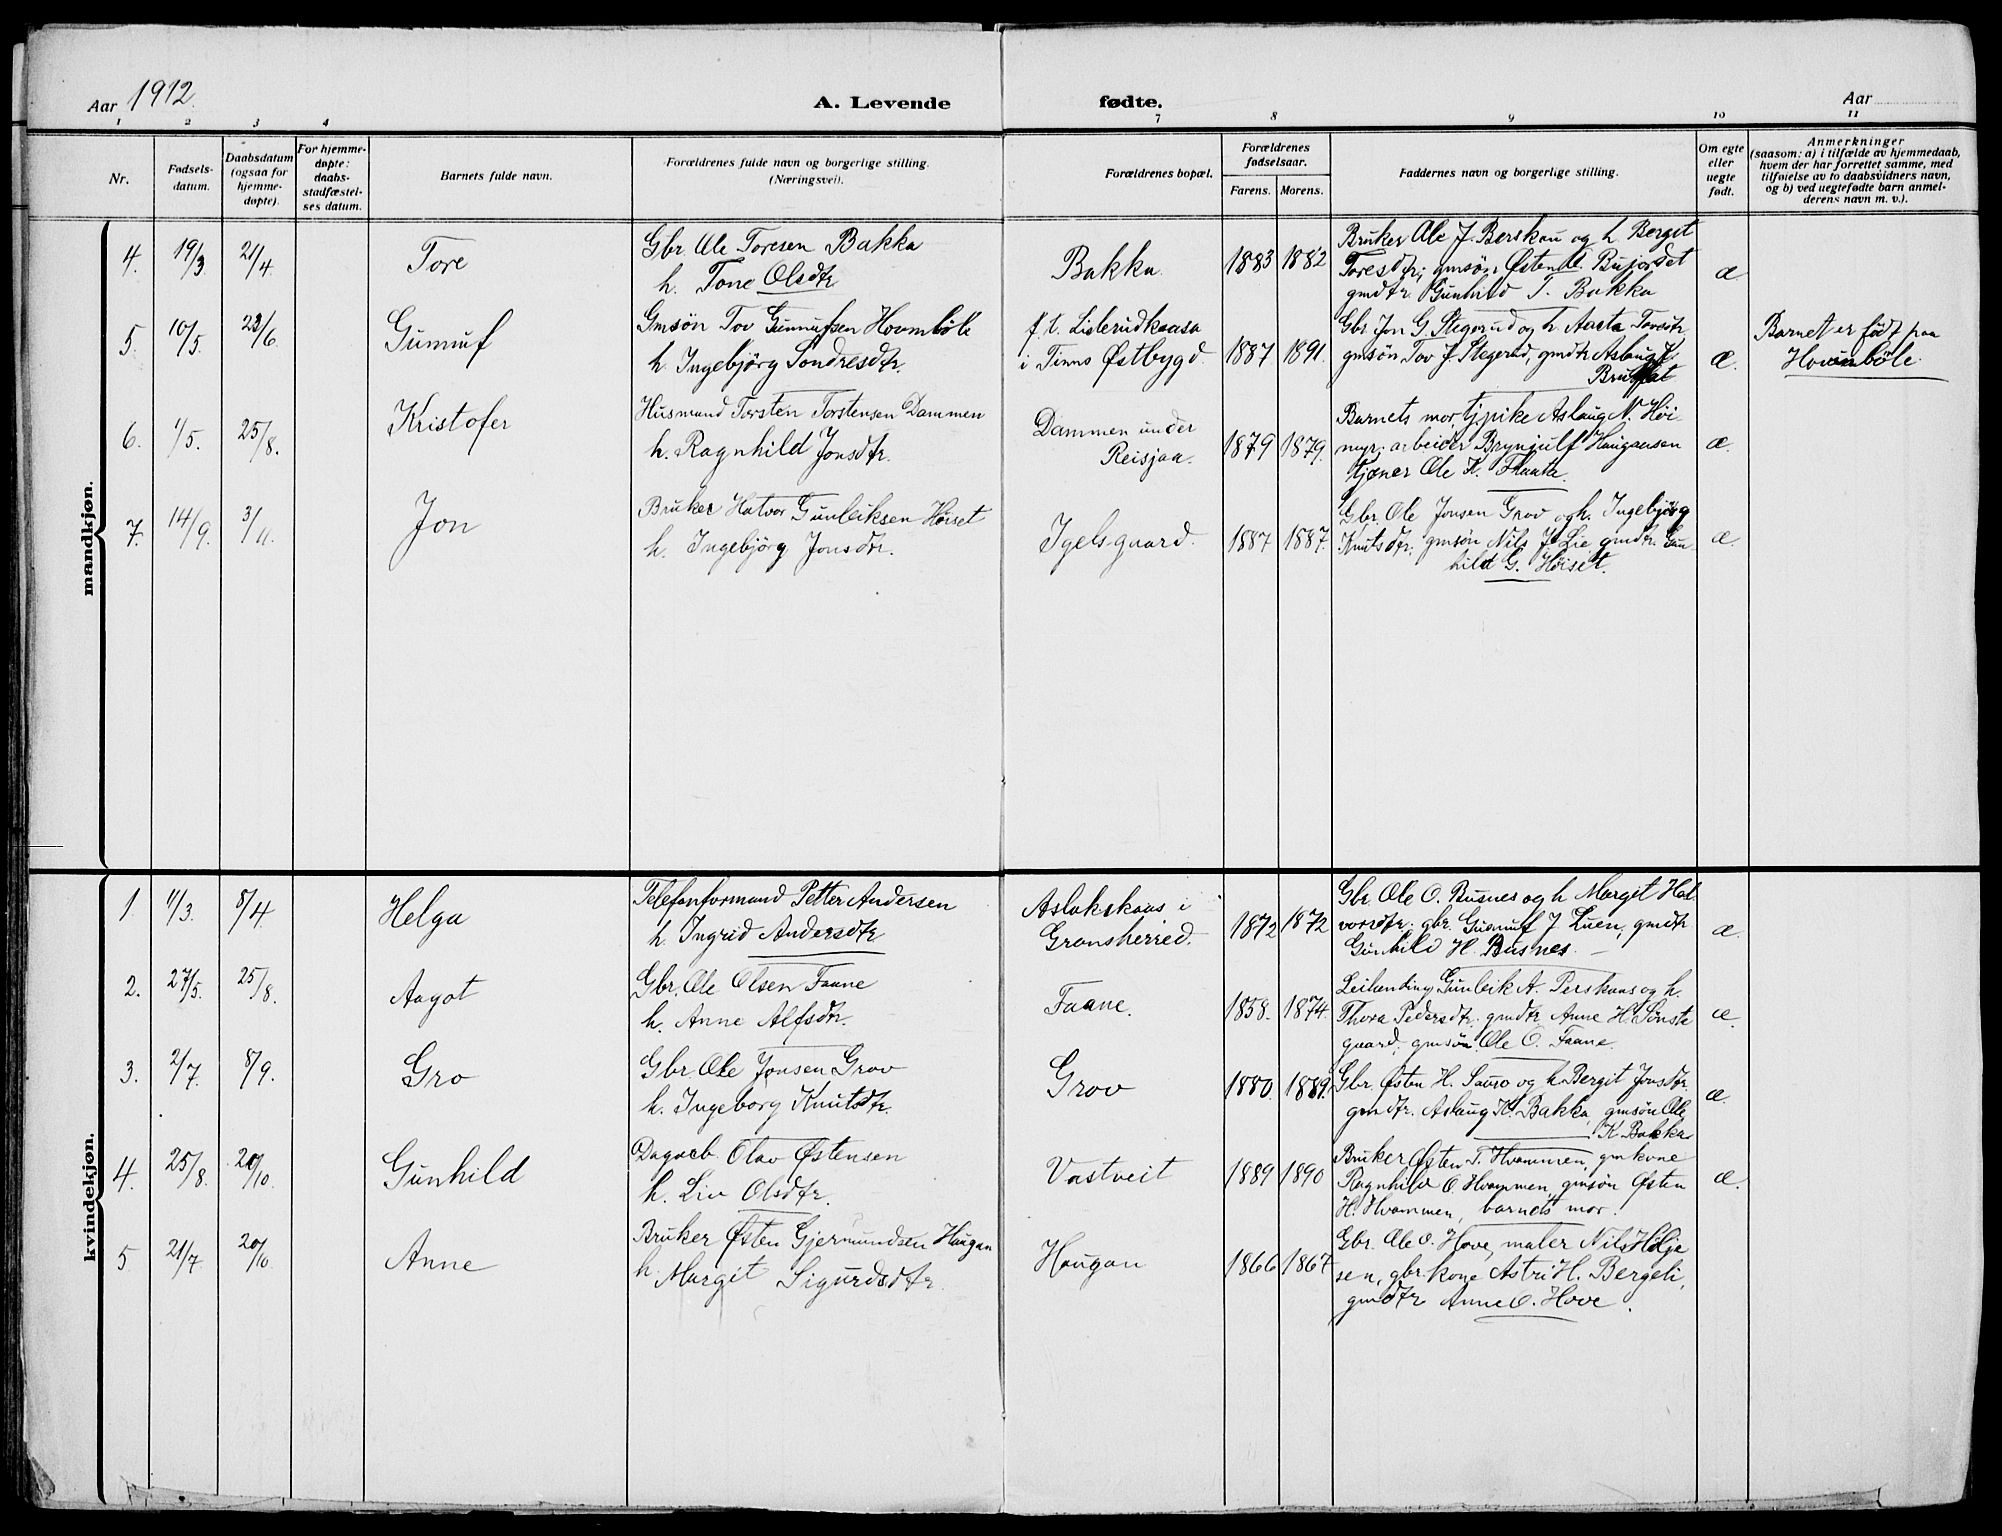 Aar 1912.
A. Levende fødte.
Aar
1 2 3 4 7 8 9 10 11
Nr.
Fødsels-
datum.
Daabsdatum
(ogsaa for
hjemme-
døpte).
For hjemme-
døpte:
daabs-
stadfæstel-
ses datum.
Barnets fulde navn.
Forældrenes fulde navn og borgerlige stilling.
(Næringsvei).
Forældrenes bopæl.
Forældrenes
fødselsaar.
Farens. Morens.
Faddernes navn og borgerlige stilling.
Om egte
eller
uegte
født.
Anmerkninger
(saasom: a) i tilfælde av hjemmedaab,
hvem der har forrettet samme, med
tilføielse av to daabsvidners navn,
og b) ved uegtefødte barn anmel-
derens navn m. v.).
mandkjøn.
4. 19/3 21/4. Tore
Gbr. Ole Toresen Bakka
h. Tone Olsdtr
Bakka 1883 1882
Bruker Ole J. Berskau og h. Bergit
Toresdtr; gmsön Østen O. Bujordet
gmdtr. Gunhild T. Bakka
æ
5. 10/5. 23/6. Gunnuf
Gmsön Tov Gunnufsen Hovmböle
h. Ingebjörg Sondresdtr.
f. t. Lislerudkaasa
i Tinns Østbygd. 1887 1891.
Gbr. Jon G. Stegerud og h. Aasta Tovsdtr
gmsön Tov J. Stegerud, gmdtr Aslaug J.
æ.
Barnet er född paa
Hovinböle.
6. 1/5. 25/8. Kristofer
Husmand Torsten Torstensen Dammen
h. Ragnhild Jonsdtr.
Dammen under
Reisjaa. 1879 1879.
Barnets mor, tjpike Aslaug N. Höi-
myr; arbeider Brynjulf Haugansen
tjener Ole K. Flaata.
æ.
7. 14/9. 3/11. Jon
Bruker Halvor Gunleiksen Høiset
h. Ingebjörg Jonsdtr.
Igelsgaard. 1887 1887.
Gbr. Ole Jonsen Grov og h. Ingebjörg
Knutsdtr; gmsön Nils J. Lie, gmdtr. Gun-
hild G. Høiset.
æ.
kvindekjøn.
1. 11/3. 8/4. Helga
Telefonformand Petter Andersen
h. Ingrid Andersdtr
Aslakskaas i
Gransherred. 1872 1872
Gbr Ole O. Busnes og h Margit Hal-
vorsdtr; gbr. Gunnuf J Luen, gmdtr
Gunhild H. Busnes.
æ.
2. 27/5. 25/8. Aagot
Gbr. Ole Olsen Faane
h. Anne Alfsdtr.
Faane. 1858. 1874.
Leilending Gunleik A. Perskaas og h.
Thora Pedersdtr. gmdtr Anne H. Sönste
gaard; gmsön Ole O. Faane.
æ.
3. 2/7. 8/9. Gro
Gbr Ole Jonsen Grov
h. Ingeborg Knutsdtr.
Grov 1880. 1889.
Gbr. Østen H. Sauro og h Bergit Jonsdtr.
gmdtr. Aslaug K. Bakka, gmsön Ole
K Bakka
æ.
4. 25/8. 20/10. Gunhild
Dagarb. Olav Østensen
h. Liv Olsdtr.
Vastveit 1889 1890
Bruker Østen T. Hvammen, gmkone
Ragnhild O. Hvammen, gmsön Østen
H. Hvammen, barnets mor.
æ.
5 21/7 20/10. Anne
Bruker Østen Gjermundsen Haugan
h. Margit Sigurdsdtr.
Haugan 1866 1867
Gbr. Ole O. Hove, maler Nils Helje
sen, gbr.kone Astri H. Bergeli,
gmdtr Anne O. Hove.